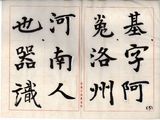 基字阿
洛州
河南人
也器識